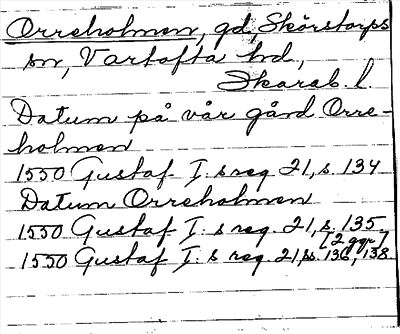 Orreholmen, gd, Skörstorps
sn, Vartofta hd,
Skarab. l.
Datum på vår gård Orre-
holmen
1550 Gustaf I: s reg. 21, s. 134
Datum Orreholmen
1550 Gustaf I: s reg. 21, s. 135
[2 ggr]
1550 Gustaf I: s reg. 21, ss. 136, 138